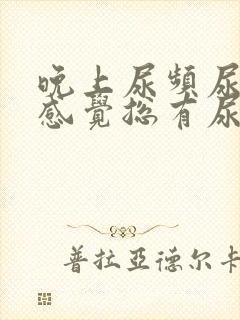 晚上尿頻尿
感覺總有尿
普拉亞德尔卡